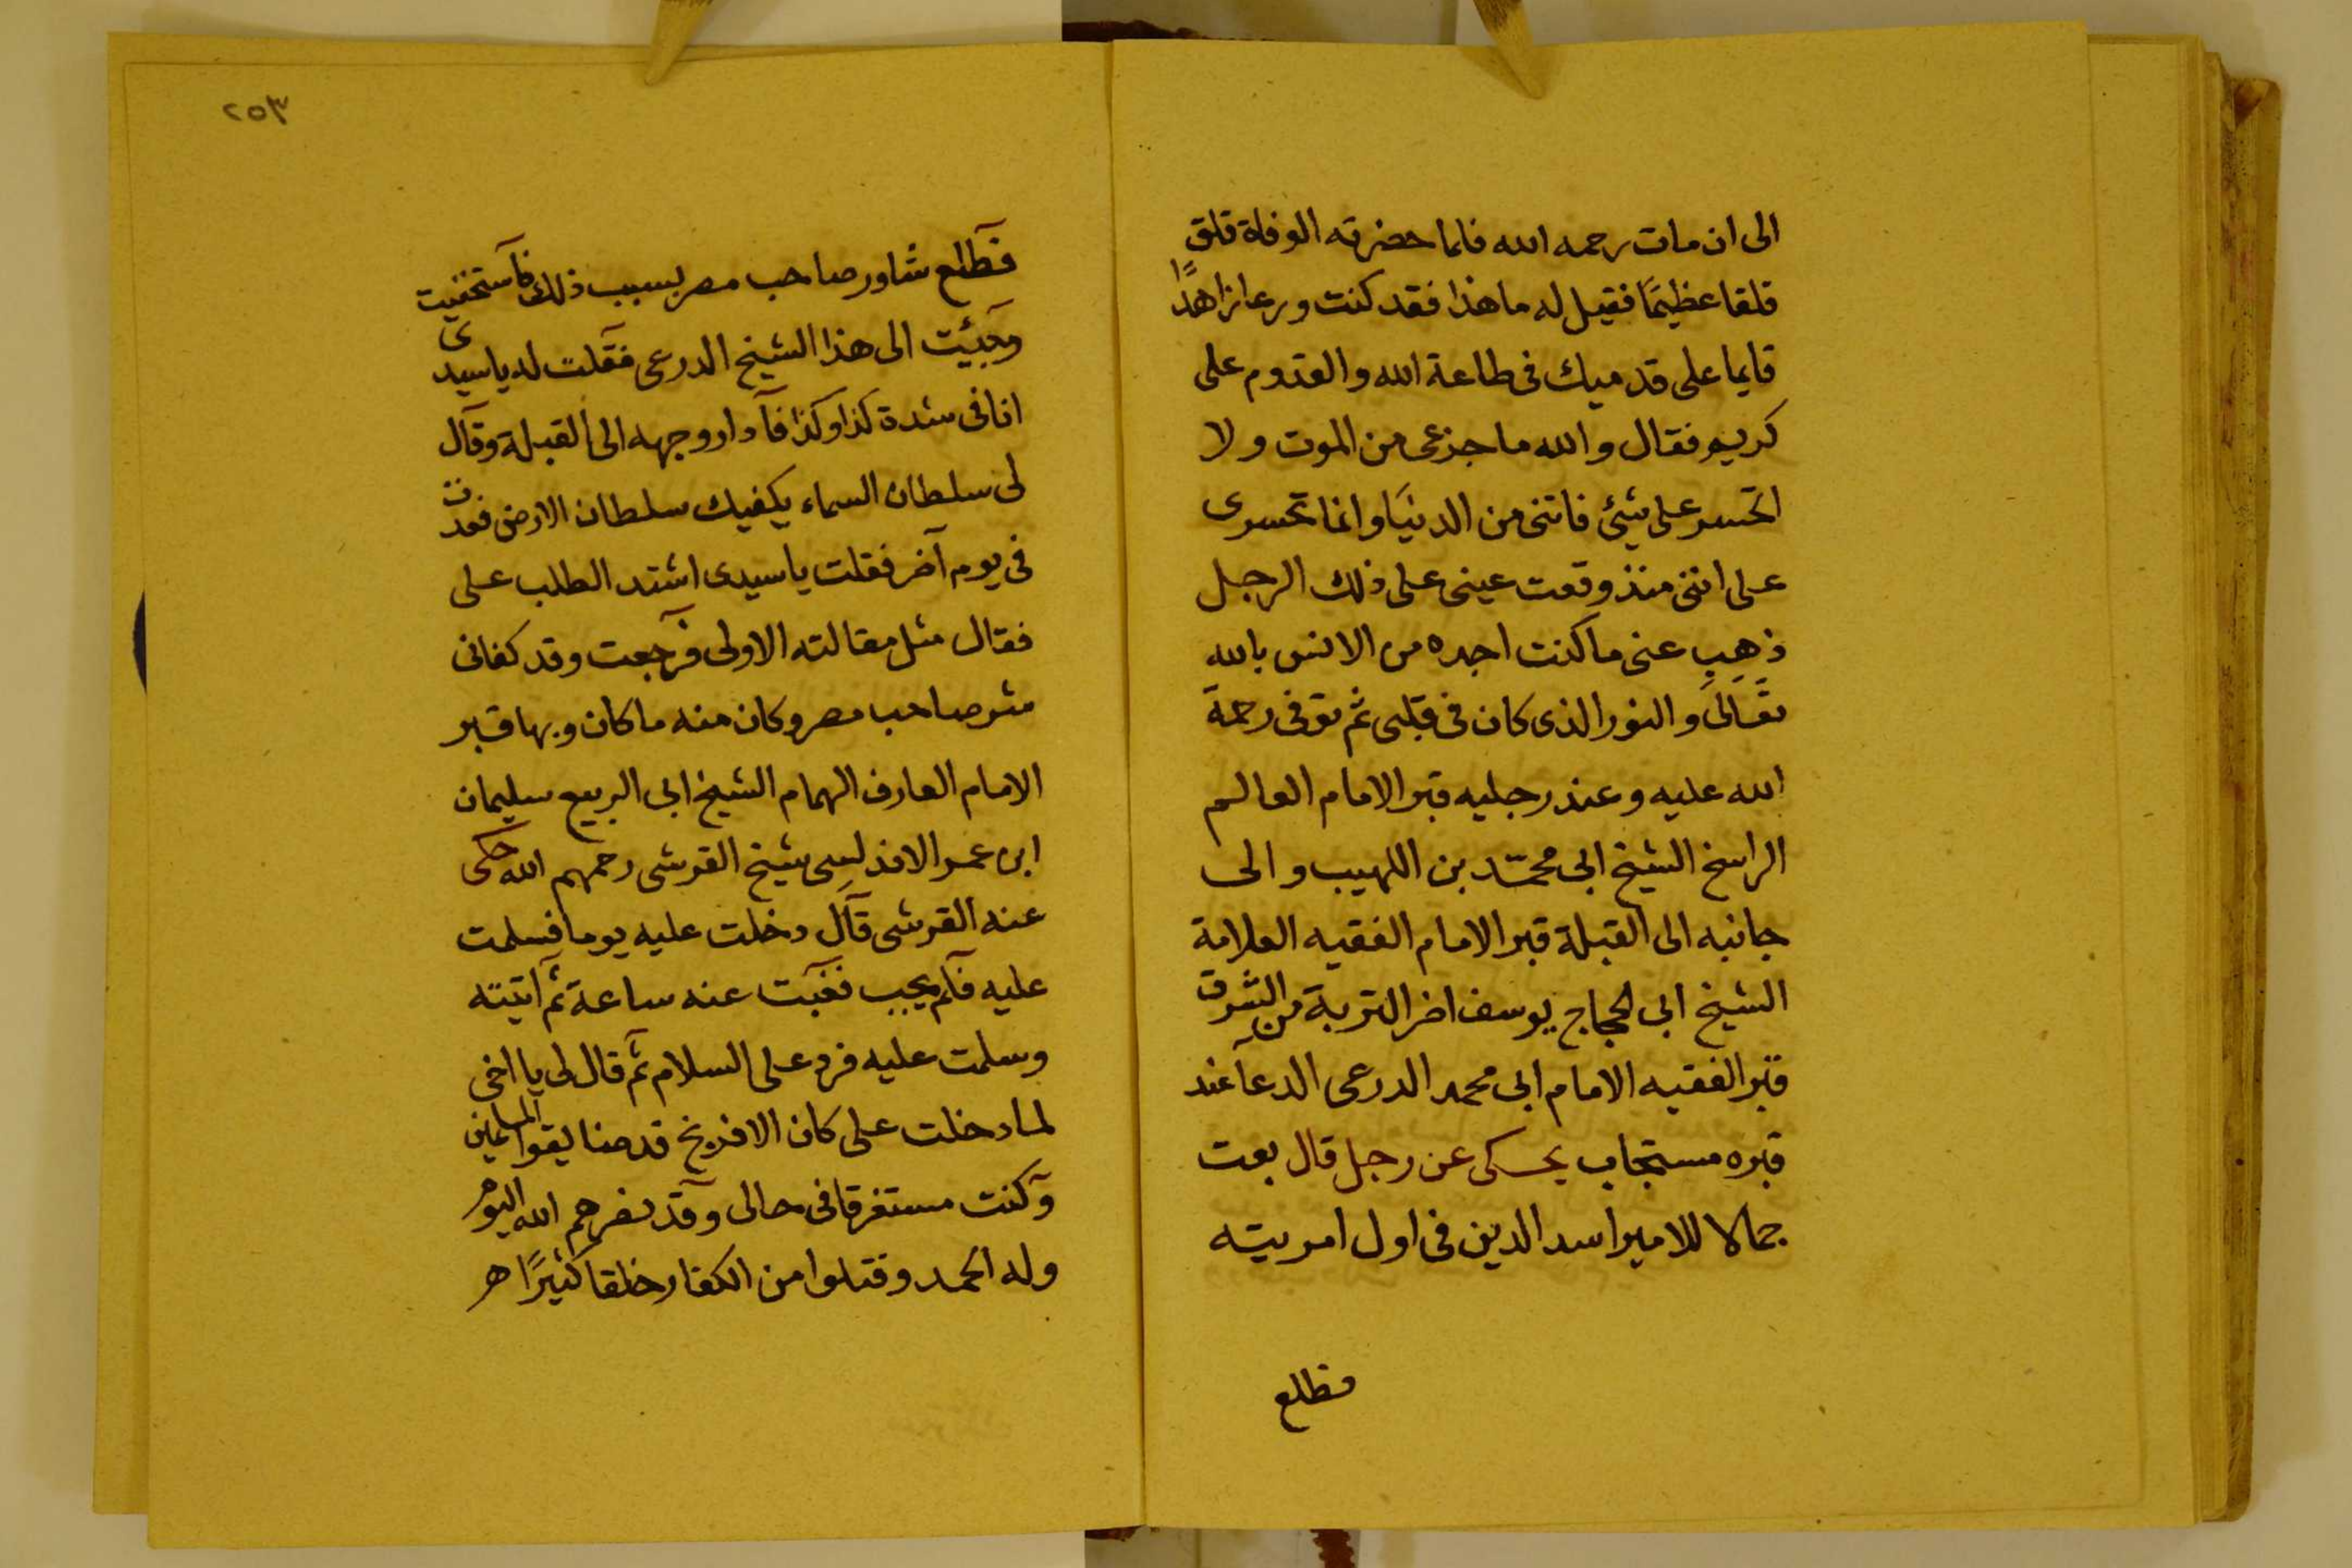 الى ان مات رحمه الله فلما حضرته الوفاة قلق
قلقا عظيمًا فقيل له ما هذا فقد كنت ورعا زاهدًا
قايما على قدميك فى طاعة الله والقدوم على
كريم فقال والله ما جزعى من الموت ولا
اتحسر على شئ فاتنى من الدنيا وانما تحسرى
على اننى منذ وقعت عينى على ذلك الرجل
ذهب عنى ما كنت اجده من الانس بالله
تعالى والنور الذى كان فى قلبى ثم توفى رحمة
الله عليه وعند رجليه قبر الامام العالم
الراسخ الشيخ ابى محمد بن اللهيب والى
جانبه الى القبلة قبر الامام الفقيه العلامة
الشيخ ابى الحجاج يوسف اخر التربة من الشرق
قبر الفقيه الامام ابى محمد الدرعى الدعا عند
قبره مستجاب يحكى عن رجل قال بعت
جمالا للامير اسد الدين فى اول امريته
فطلع
٢٥٣
فطلع شاور صاحب مصر بسبب ذلك فاستخفيت
وجئيت الى هذا الشيخ الدرعى فقلت له يا سيدى
انا فى شدة كذا وكذا فادار وجهه الى القبلة وقال
لى سلطان السماء يكفيك سلطان الارض فعدت
فى يوم آخر فقلت يا سيدى اشتد الطلب على
فقال مثل مقالته الاولى فرجعت وقد كفانى
شر صاحب مصر وكان منه ما كان وبها قبر
الامام العارف الهمام الشيخ ابى الربيع سليمان
ابن عمر الاندلسى شيخ القرشى رحمهم الله حكى
عنه القرشى قال دخلت عليه يوما فسلمت
عليه فلم يجب فغبت عنه ساعة ثم اتيته
وسلمت عليه فرد على السلام ثم قال لى يا اخى
لما دخلت على كان الافرنج قد ضايقوا المسلمين
وكنت مستغرقا فى حالى وقد نصرهم الله اليوم
وله الحمد وقتلوا من الكفار خلقا كثيرًا هـ